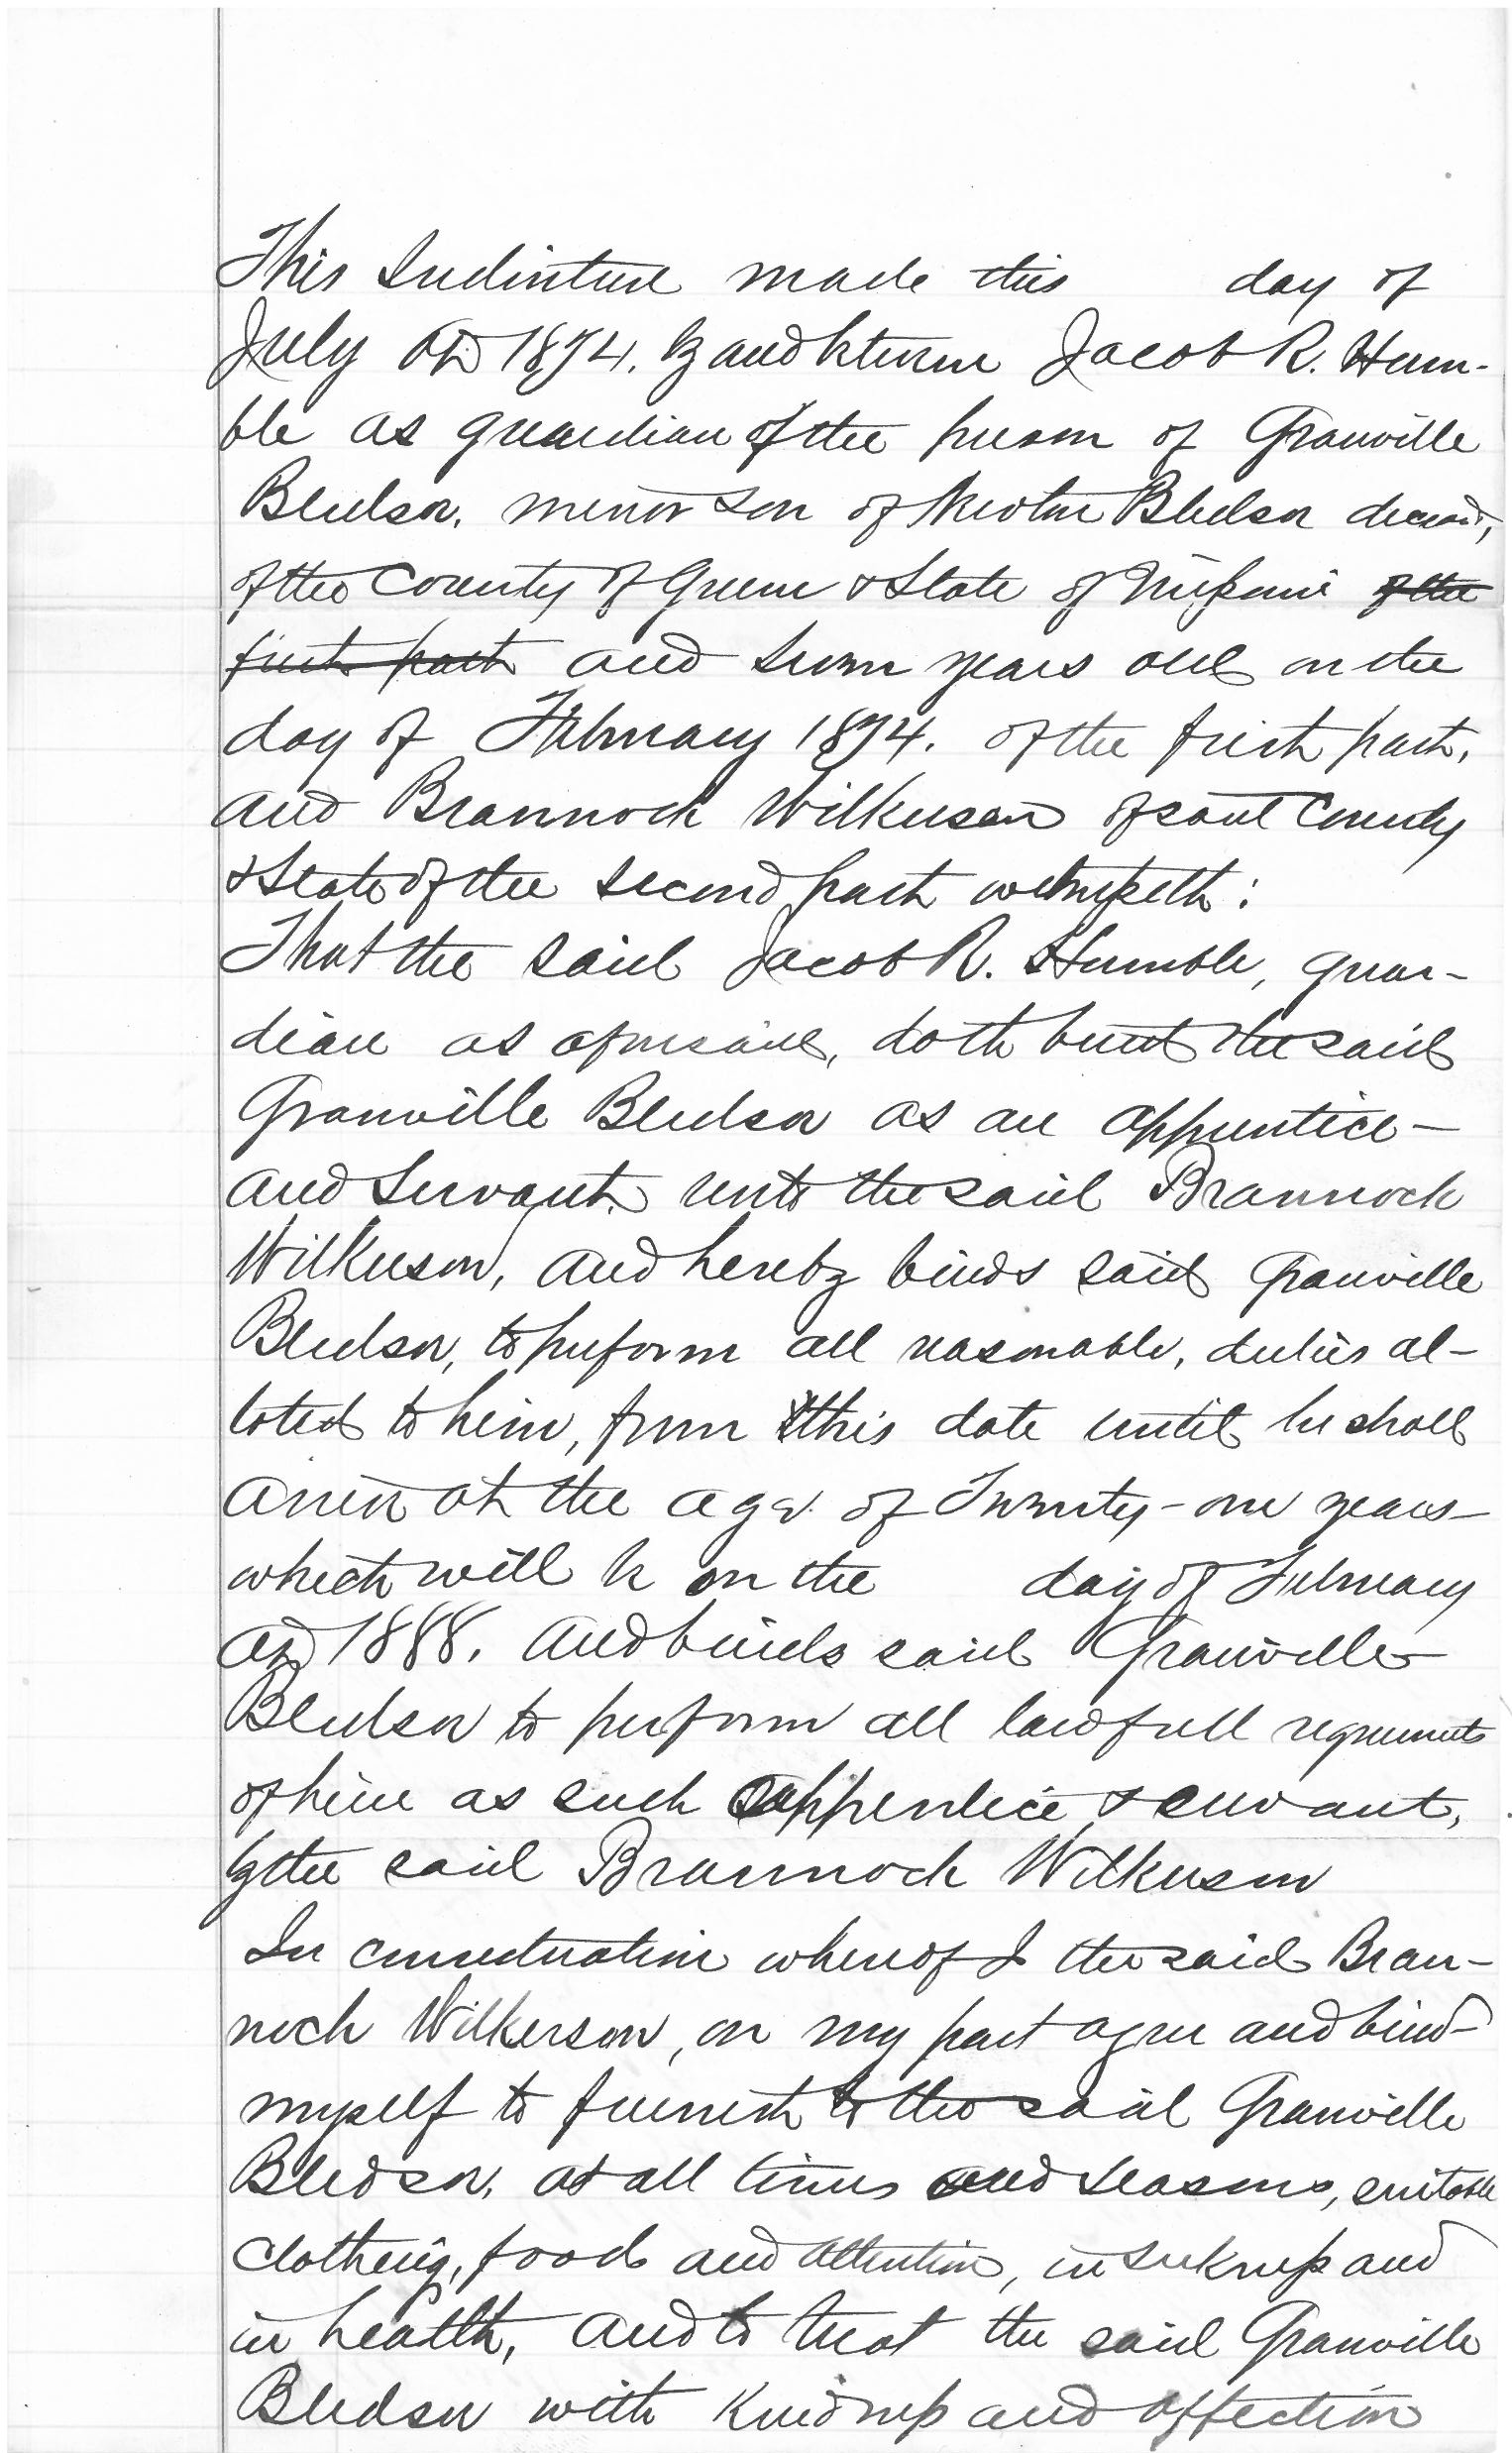 This Indenture made this day of
July AD 1874. by and between Jacob R. Hum-
ble as guardian of the person of Granville
Bledsoe. minor son of Newton Bledsoe deceased,
of the County of Greene & State of Missouri of the
first part and seven years old on the
day of February 1874. of the first part,
and Brannock Wilkerson of said County
& State of the second part witnesseth:
That the said Jacob R. Humble, guar-
dian as aforesaid, doth bind the said
Granville Bledsoe as an apprentice -
and Servant, unto the said Brannock
Wilkerson, and hereby binds said Granville
Bledsoe, to perform all reasonable, duties al-
loted to him, from this date until he shall
arrive at the age of Twenty-one years -
which will be on the day of February
AD 1888. and binds said Granville
Bledsoe to perform all lawfull requirements
of him as such apprentice & servant,
by the said Brannock Wilkerson
In consideration whereof I the said Bran-
nock Wilkerson, on my part agree and bind
myself to furnish to the said Granville
Bledsoe, at all times and seasons, suitable
clothing, food and attention, in sickness and
in health, and to treat the said Granville
Bledsoe with kindness and affection